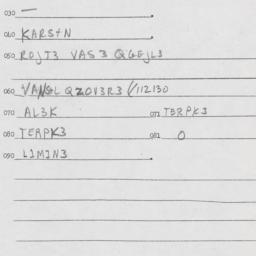 030 —
040 KARSTN
050 ROJT3 VAS3 QGEJL3
060 VANGL QZOV3R3 //112130
070 AL3K 071 TERPK3
080 TERPK3 081 0
090 LIMIN3